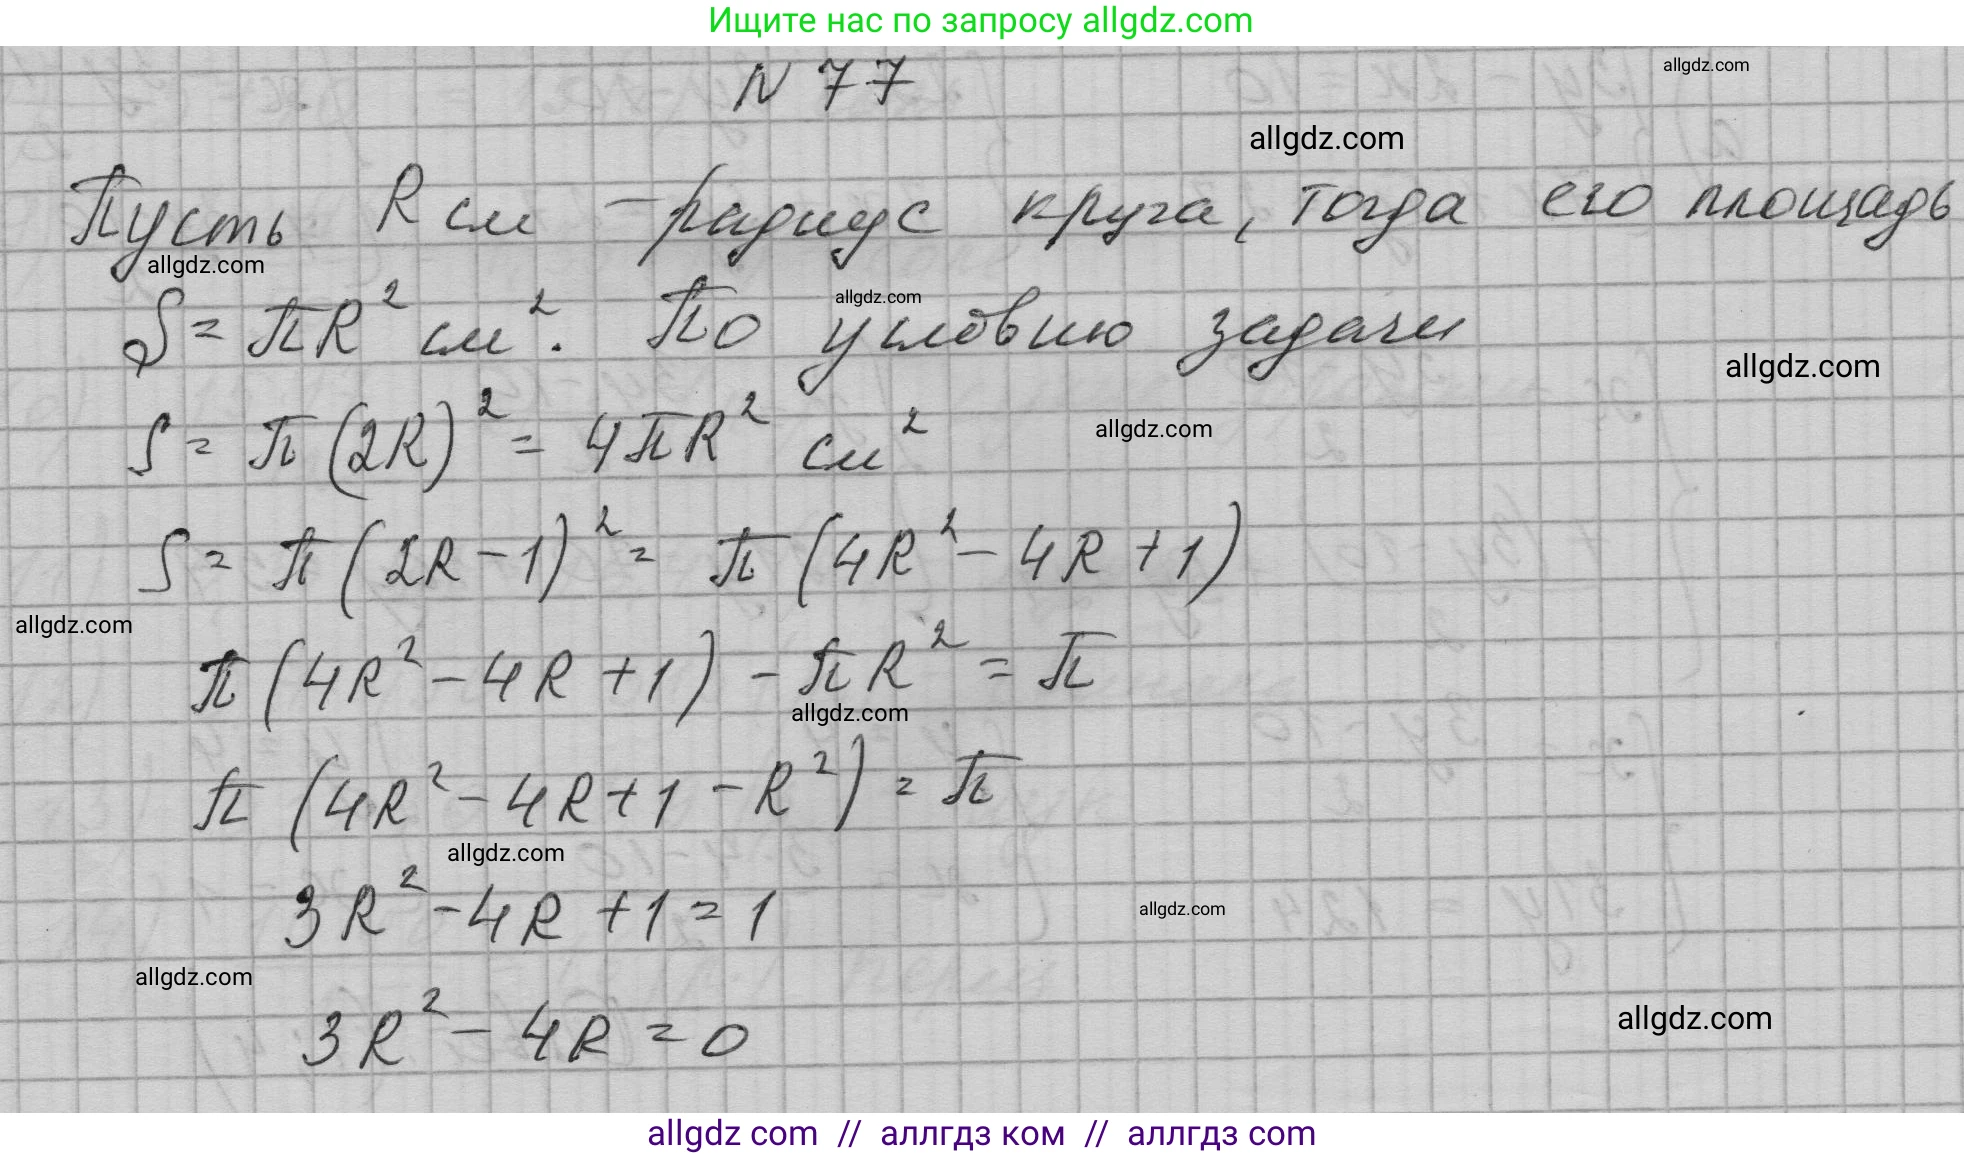 Ищите нас по запросу allgdz.com
N 77
allgdz.com
allgdz.com
Пусть R см – радиус круга, тогда его площадь
allgdz.com
S = πR² см². По условию задачи
allgdz.com
allgdz.com
S = π(2R)² = 4πR² см²
allgdz.com
S = π(2R - 1)² = π(4R² - 4R + 1)
allgdz.com
π(4R² - 4R + 1) - πR² = π
allgdz.com
π(4R² - 4R + 1 - R²) = π
allgdz.com
3R² - 4R + 1 = 1
allgdz.com
allgdz.com
3R² - 4R = 0
allgdz.com
allgdz com // аллгдз ком // аллгдз com